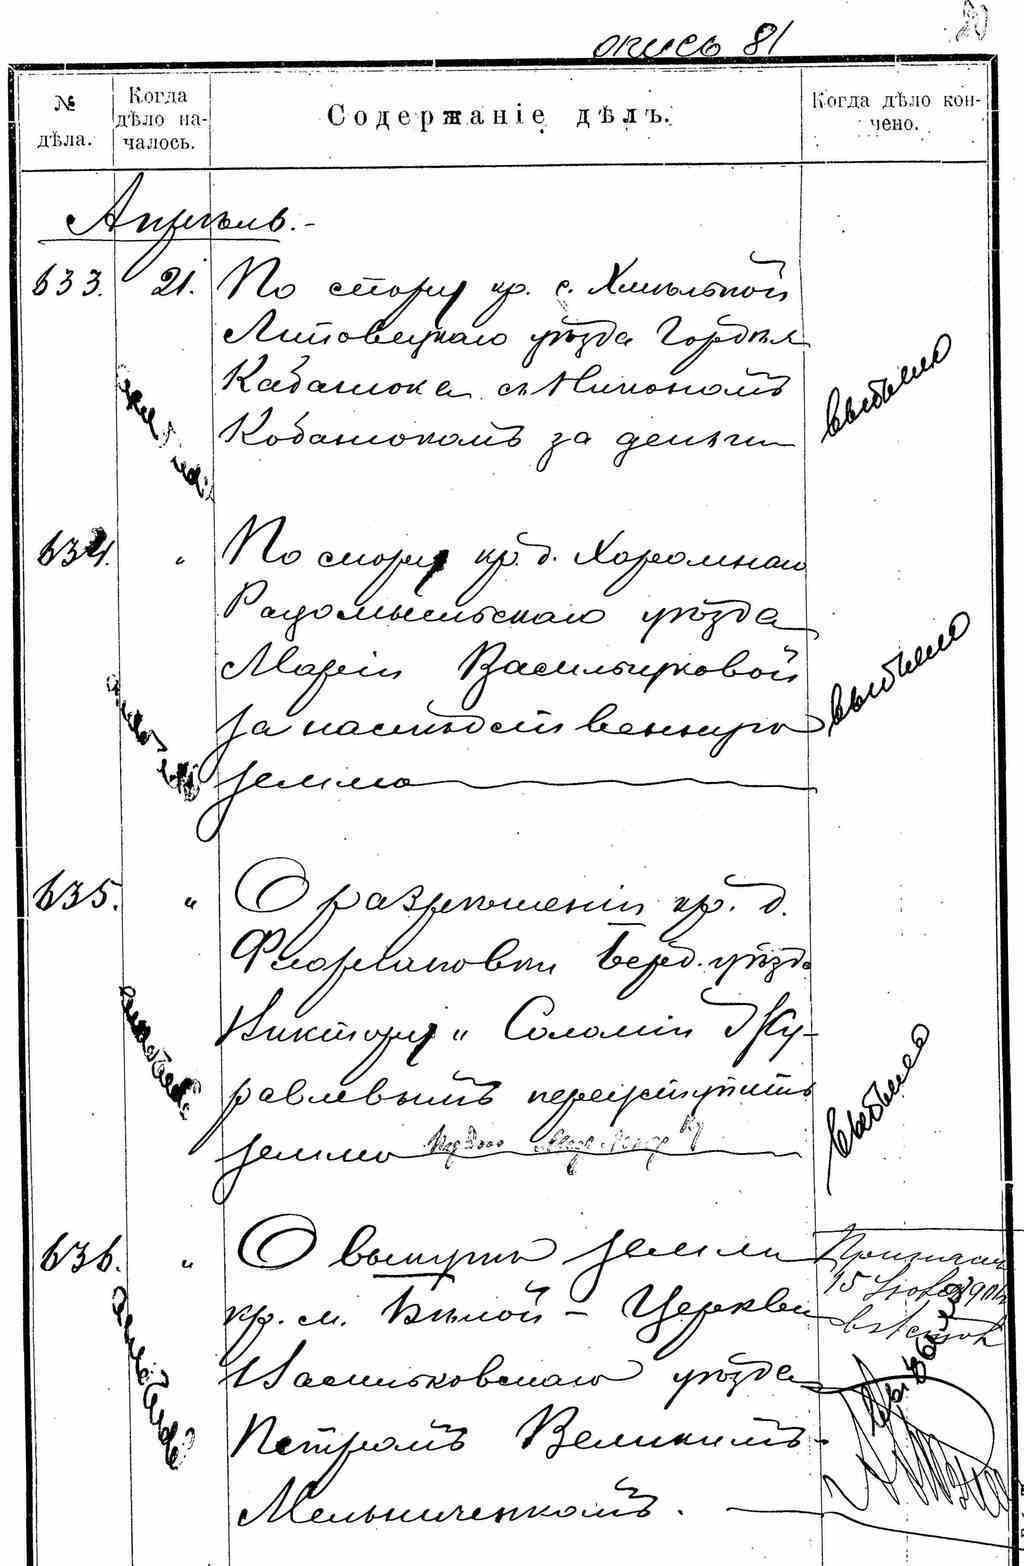 опись 81
№ дѣла.
Когда дѣло началось.
Содержаніе дѣлъ.
Когда дѣло кончено.
Апрѣль.-
633. 21. По спору кр. с. Хмѣльной
Липовецкаго уѣзда Гордѣя
Кабанюка съ Никономъ
Кобанюкомъ за деньги
выбыло
634. " По спору кр. д. Хоромнаго
Радомысльскаго уѣзда
Маріи Васильчуковой
за наслѣдственную
землю
выбыло
635. " О разрѣшеніи кр. д.
Флоріановки Берд. уѣзда
Виктору и Соломіи Жу-
равлевымъ переуступить
землю
выбыло
636. " О выкупѣ земли
кр. м. Бѣлой - Церкви
Васильковскаго уѣзда
Петромъ Великимъ-
Мельниченкомъ.
15